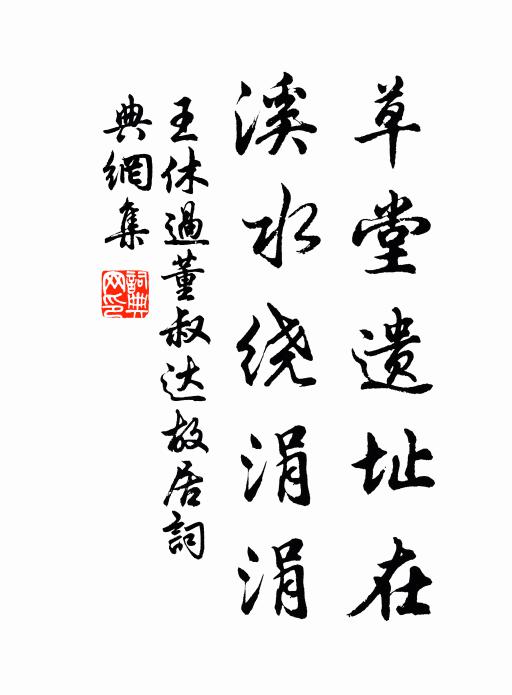 草堂遗址在
溪水绕涓涓
王休過董叔达故居詞
典網集
詞典
网印